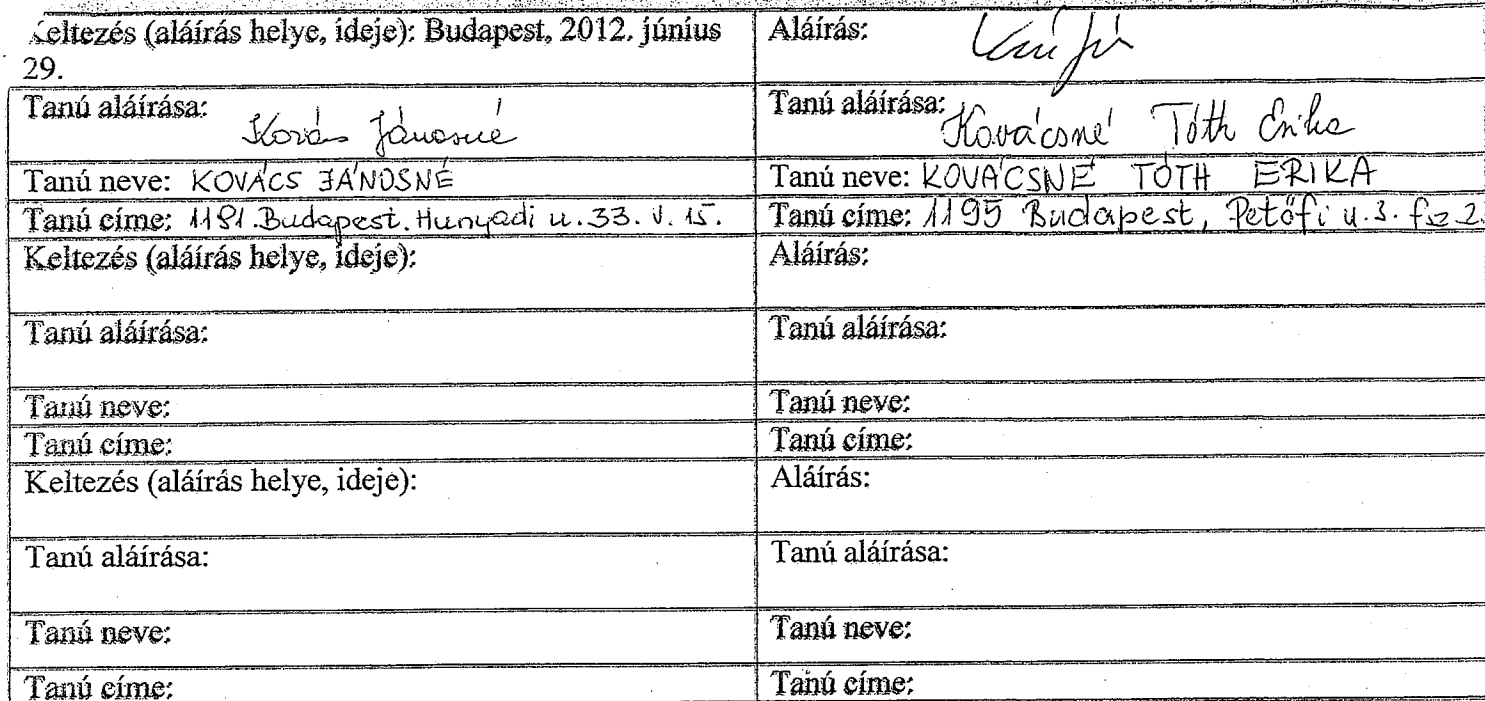 Keltezés (aláírás helye, ideje): Budapest, 2012. június
29.
Aláírás:
Tanú aláírása: Kovács Jánosné
Tanú aláírása: Kovácsné Tóth Erika
Tanú neve: KOVÁCS JÁNOSNÉ
Tanú neve: KOVÁCSNÉ TÓTH ERIKA
Tanú címe: 1181. Budapest. Hunyadi u. 33. V. 15.
Tanú címe: 1195 Budapest, Petőfi u. 3. fsz 2.
Keltezés (aláírás helye, ideje):
Aláírás:
Tanú aláírása:
Tanú aláírása:
Tanú neve:
Tanú neve:
Tanú címe:
Tanú címe:
Keltezés (aláírás helye, ideje):
Aláírás:
Tanú aláírása:
Tanú aláírása:
Tanú neve:
Tanú neve:
Tanú címe:
Tanú címe: